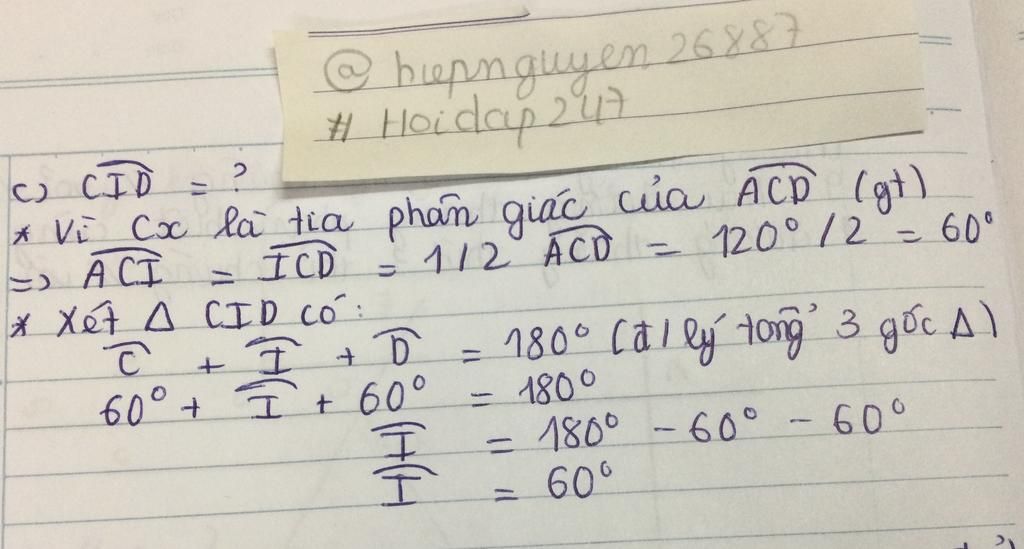 @ hiepnguyen26887
# Hoidap247
c) CID = ?
* Vì Cx là tia phân giác của ACD (gt)
=> ACI = ICD = 1/2 ACD = 120° / 2 = 60°
* Xét Δ CID có:
C + I + D = 180° (đ/lý tổng 3 góc Δ)
60° + I + 60° = 180°
I = 180° - 60° - 60°
I = 60°